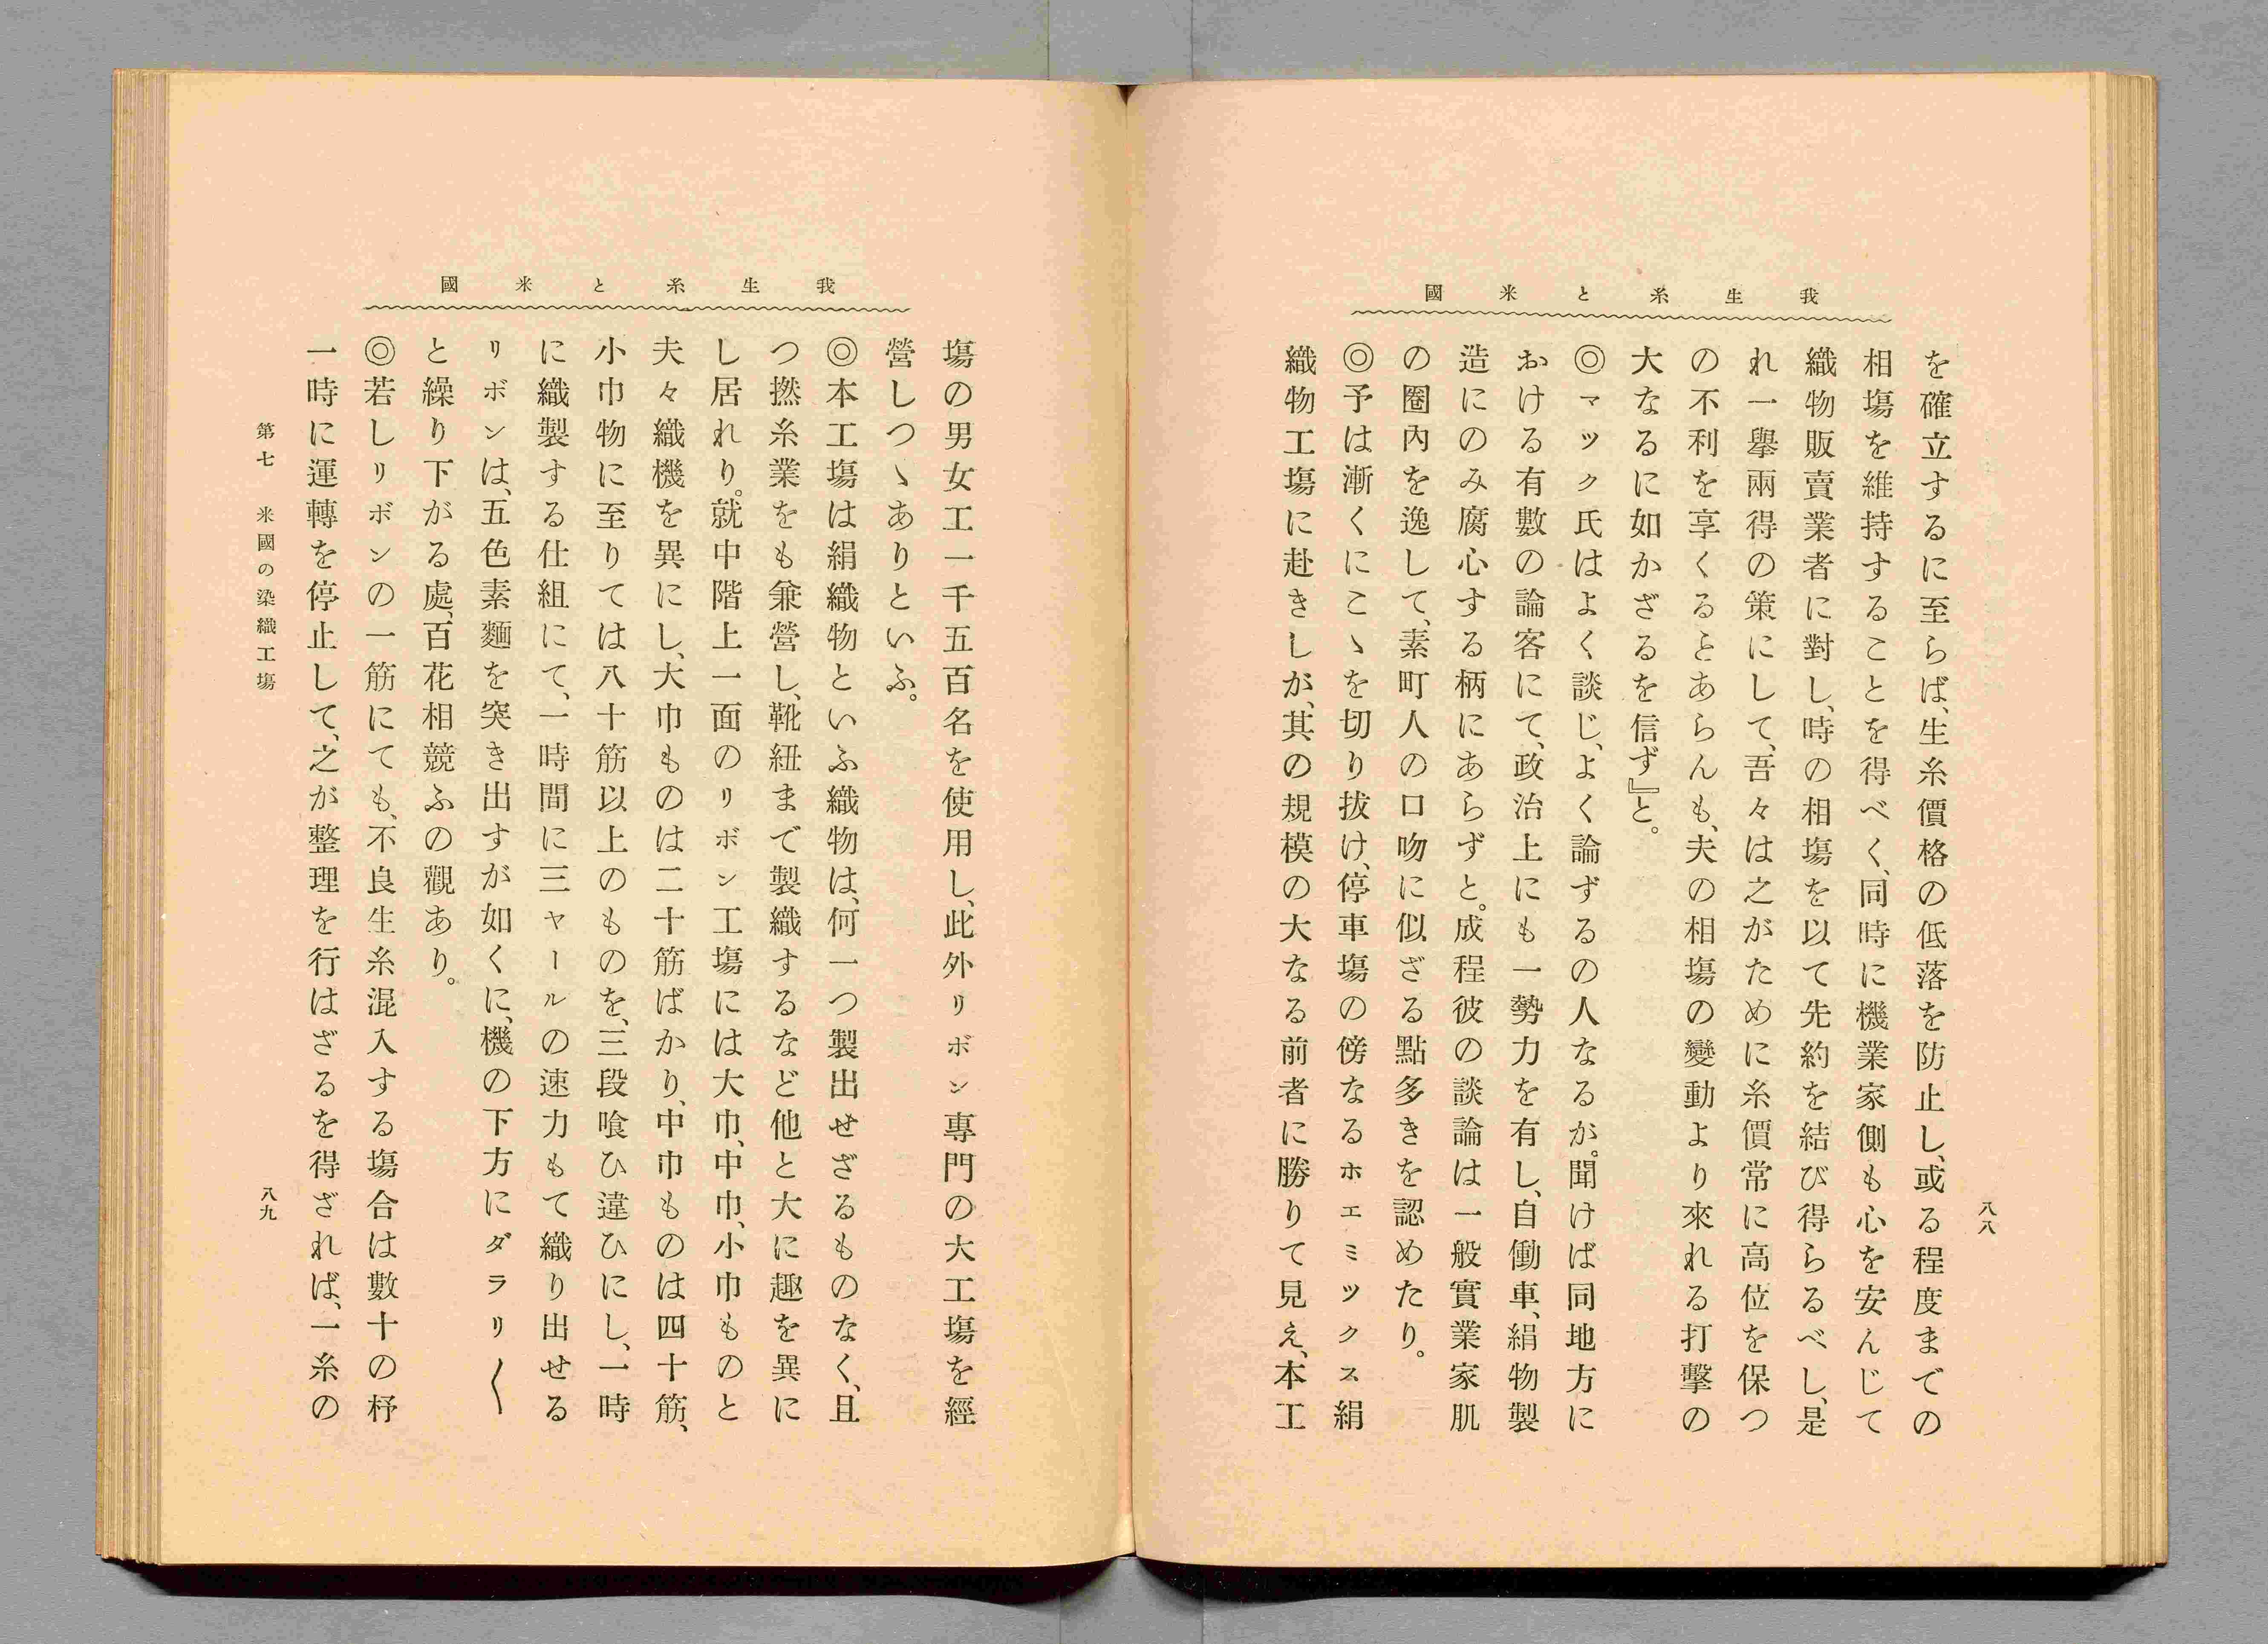 我生糸と米國
八八
を確立するに至らば、生糸價格の低落を防止し、或る程度までの
相塲を維持することを得べく、同時に機業家側も心を安んじて
織物販賣業者に對し、時の相塲を以て先約を結び得らるべし、是
れ一擧兩得の策にして、吾々は之がために糸價常に高位を保つ
の不利を享くるとあらんも、夫の相塲の變動より來れる打擊の
大なるに如かざるを信ず』と。
◎マック氏はよく談じ、よく論ずるの人なるが。聞けば同地方に
おける有數の論客にて、政治上にも一勢力を有し、自働車、絹物製
造にのみ腐心する柄にあらずと。成程彼の談論は一般實業家肌
の圈內を逸して、素町人の口吻に似ざる點多きを認めたり。
◎予は漸くにこゝを切り拔け、停車塲の傍なるホエミックス絹
織物工塲に赴きしが、其の規模の大なる前者に勝りて見え、本工
我生糸と米國
塲の男女工一千五百名を使用し、此外リボン專門の大工塲を經
營しつゝありといふ。
◎本工塲は絹織物といふ織物は、何一つ製出せざるものなく、且
つ撚糸業をも兼營し、靴紐まで製織するなど他と大に趣を異に
し居れり。就中階上一面のリボン工塲には大巾、中巾、小巾ものと
夫々織機を異にし、大巾ものは二十筋ばかり、中巾ものは四十筋、
小巾物に至りては八十筋以上のものを、三段喰ひ違ひにし、一時
に織製する仕組にて、一時間に三ヤールの速力もて織り出せる
リボンは、五色素麵を突き出すが如くに、機の下方にダラリ〱
と繰り下がる處、百花相競ふの觀あり。
◎若しリボンの一筋にても、不良生糸混入する塲合は數十の杼
一時に運轉を停止して、之が整理を行はざるを得ざれば、一糸の
第七 米國の染織工塲
八九